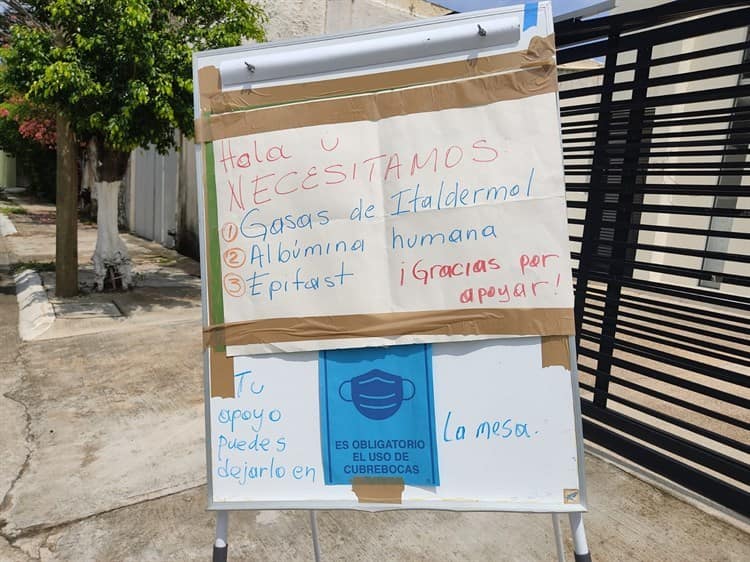 Hola ü
NECESITAMOS.
① Gasas de Italdermol
② Albúmina humana
③ Epifast
¡Gracias por
apoyar!
Tu
apoyo
puedes
dejarlo en
ES OBLIGATORIO
EL USO DE
CUBREBOCAS
La mesa.